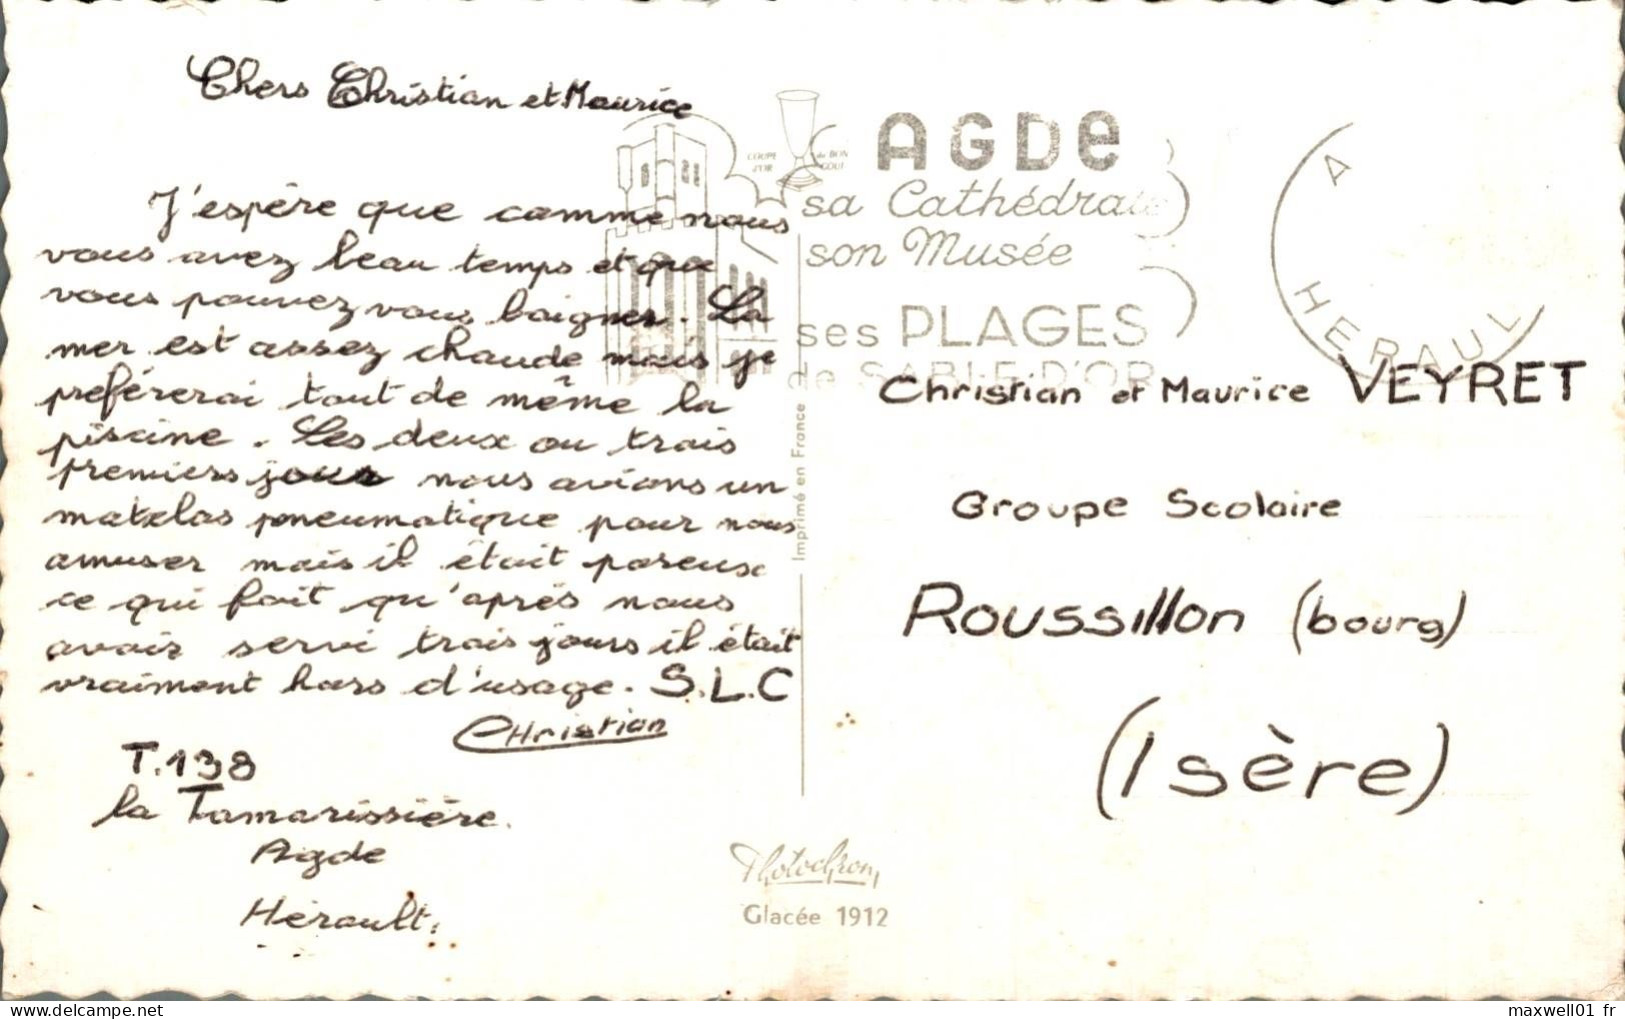 Chers Christian et Maurice
J'espère que comme nous
vous avez beau temps et que
vous pouvez vous baigner. La
mer est assez chaude mais je
preférerai tout de même la
piscine. Les deux ou trois
premiers jours nous avions un
matelas pneumatique pour nous
amuser mais il était poreux
ce qui fait qu'après nous
avoir servi trois jours il était
vraiment hors d'usage. S.L.C
Christian
T.138
la Tamarissière.
Agde
Hérault.
COUPE D'OR
du BON GOUT
AGDE
sa Cathédrale
son Musée
ses PLAGES
de SABLE D'OR
A
HERAUL
Imprimé en France
Christian et Maurice VEYRET
Groupe Scolaire
Roussillon (bourg)
(Isère)
Photochrom
Glacée 1912
maxwell01 fr